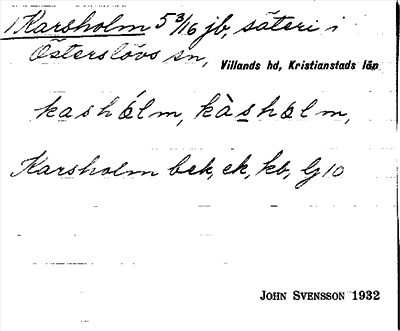 1 Karsholm 5 3/16 jb, säteri i
Österslövs sn, Villands hd, Kristianstads län
kashólm, kàshólm,
Karsholm bek, ek, kb, lj 10
JOHN SVENSSON 1932